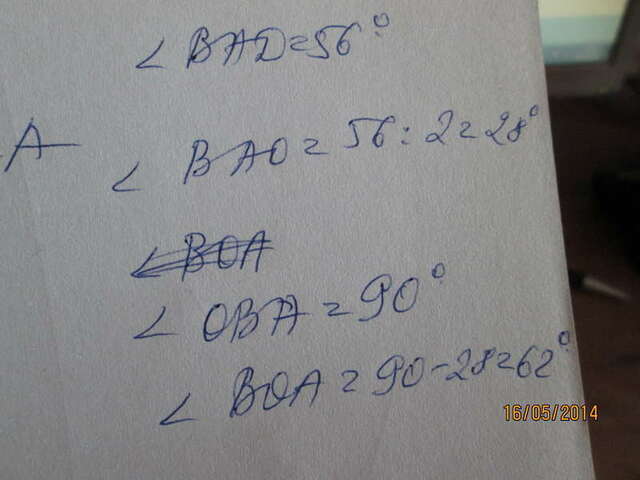 ∠ BAD=56°
A
∠ BAO = 56:2=28°
∠ BOA
∠ OBA = 90°
∠ BOA = 90-28=62°
16/05/2014